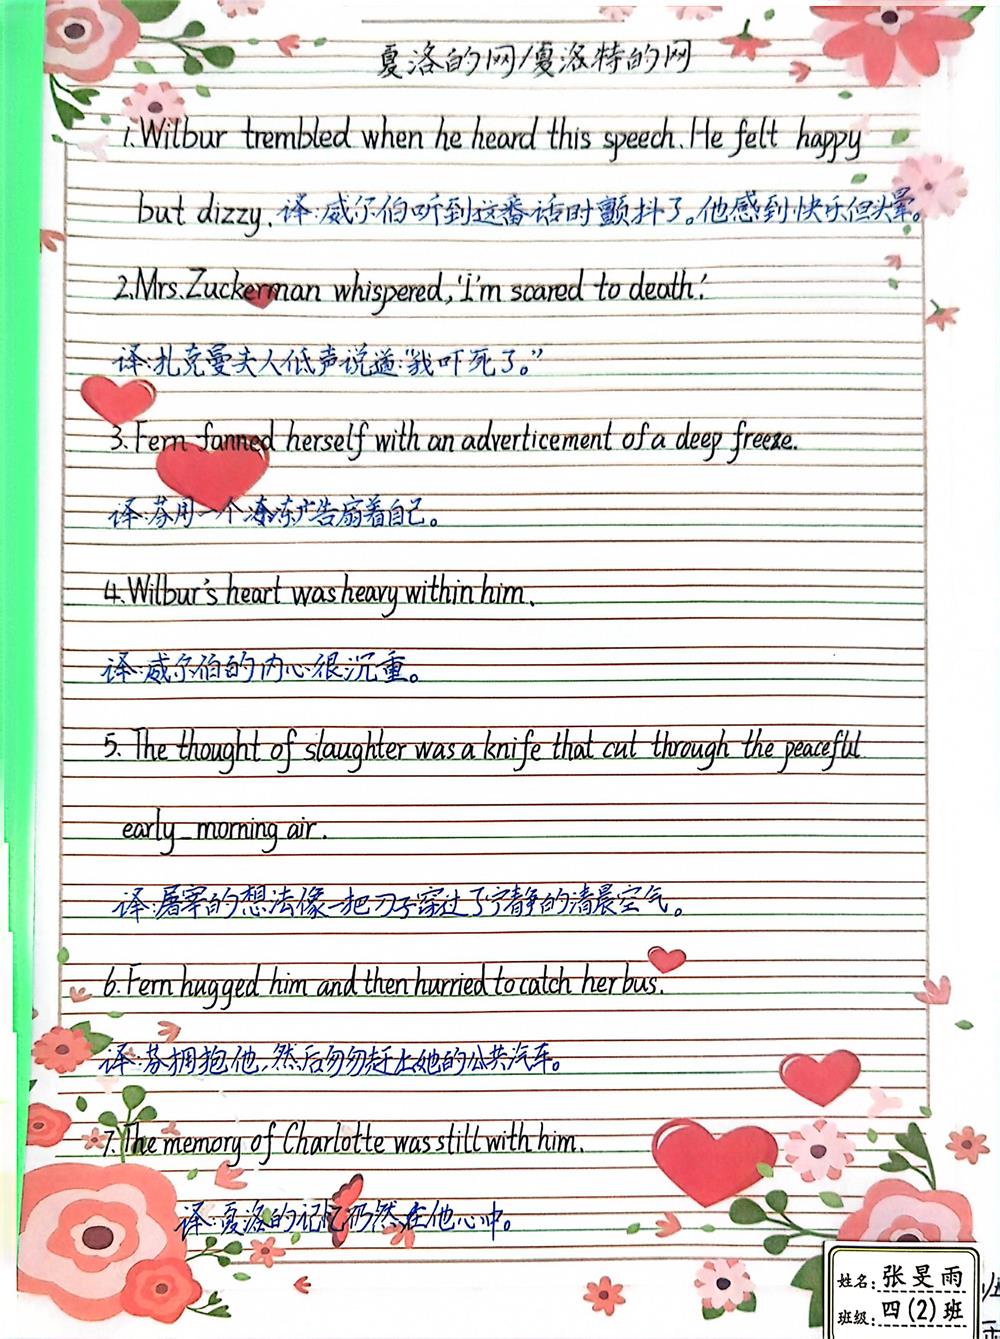 夏洛的网/夏洛特的网
1.Wilbur trembled when he heard this speech.He felt happy
but dizzy.译:威尔伯听到这番话时颤抖了。他感到快乐但头晕。
2.Mrs.Zuckerman whispered,'I'm scared to death.'
译:扎克曼夫人低声说道:"我吓死了。"
3.Fern fanned herself with an adverticement of a deep freeze.
译:芬用一个冷冻广告扇着自己。
4.Wilbur's heart was heavy within him.
译:威尔伯的内心很沉重。
5. The thought of slaughter was a knife that cut through the peaceful
early-morning air.
译:屠宰的想法像一把刀子穿过了宁静的清晨空气。
6.Fern hugged him and then hurried to catch her bus.
译:芬拥抱他,然后匆匆赶上她的公共汽车。
7.The memory of Charlotte was still with him.
译:夏洛的记忆仍然在他心中。
姓名:张旻雨
班级:四(2)班